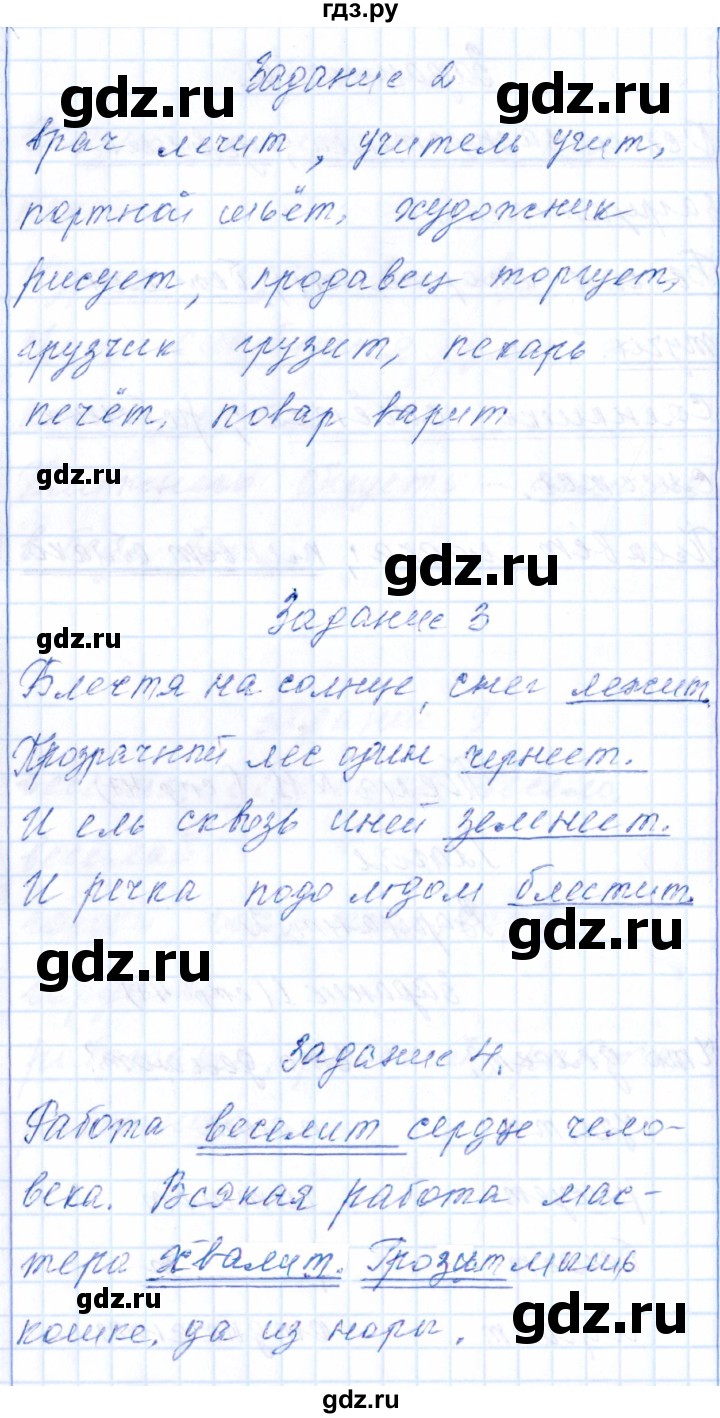 гдз.ру
Задание 2
gdz.ru gdz.ru
врач лечит, учитель учит,
портной шьёт, художник
рисует, продавец торгует,
gdz.ru gdz.ru
грузчик грузит, пекарь
печёт, повар варит
gdz.ru
gdz.ru
Задание 3
gdz.ru
Блестя на солнце, снег лежит.
gdz.ru
Прозрачный лес один чернеет.
gdz.ru
И ель сквозь иней зеленеет.
И речка подо льдом блестит.
gdz.ru
gdz.ru
Задание 4.
gdz.ru
Работа веселит сердце чело-
века. Всякая работа мас-
тера хвалит. Грозит мышь
gdz.ru
кошке, да из норы.
gdz.ru
gdz.ru